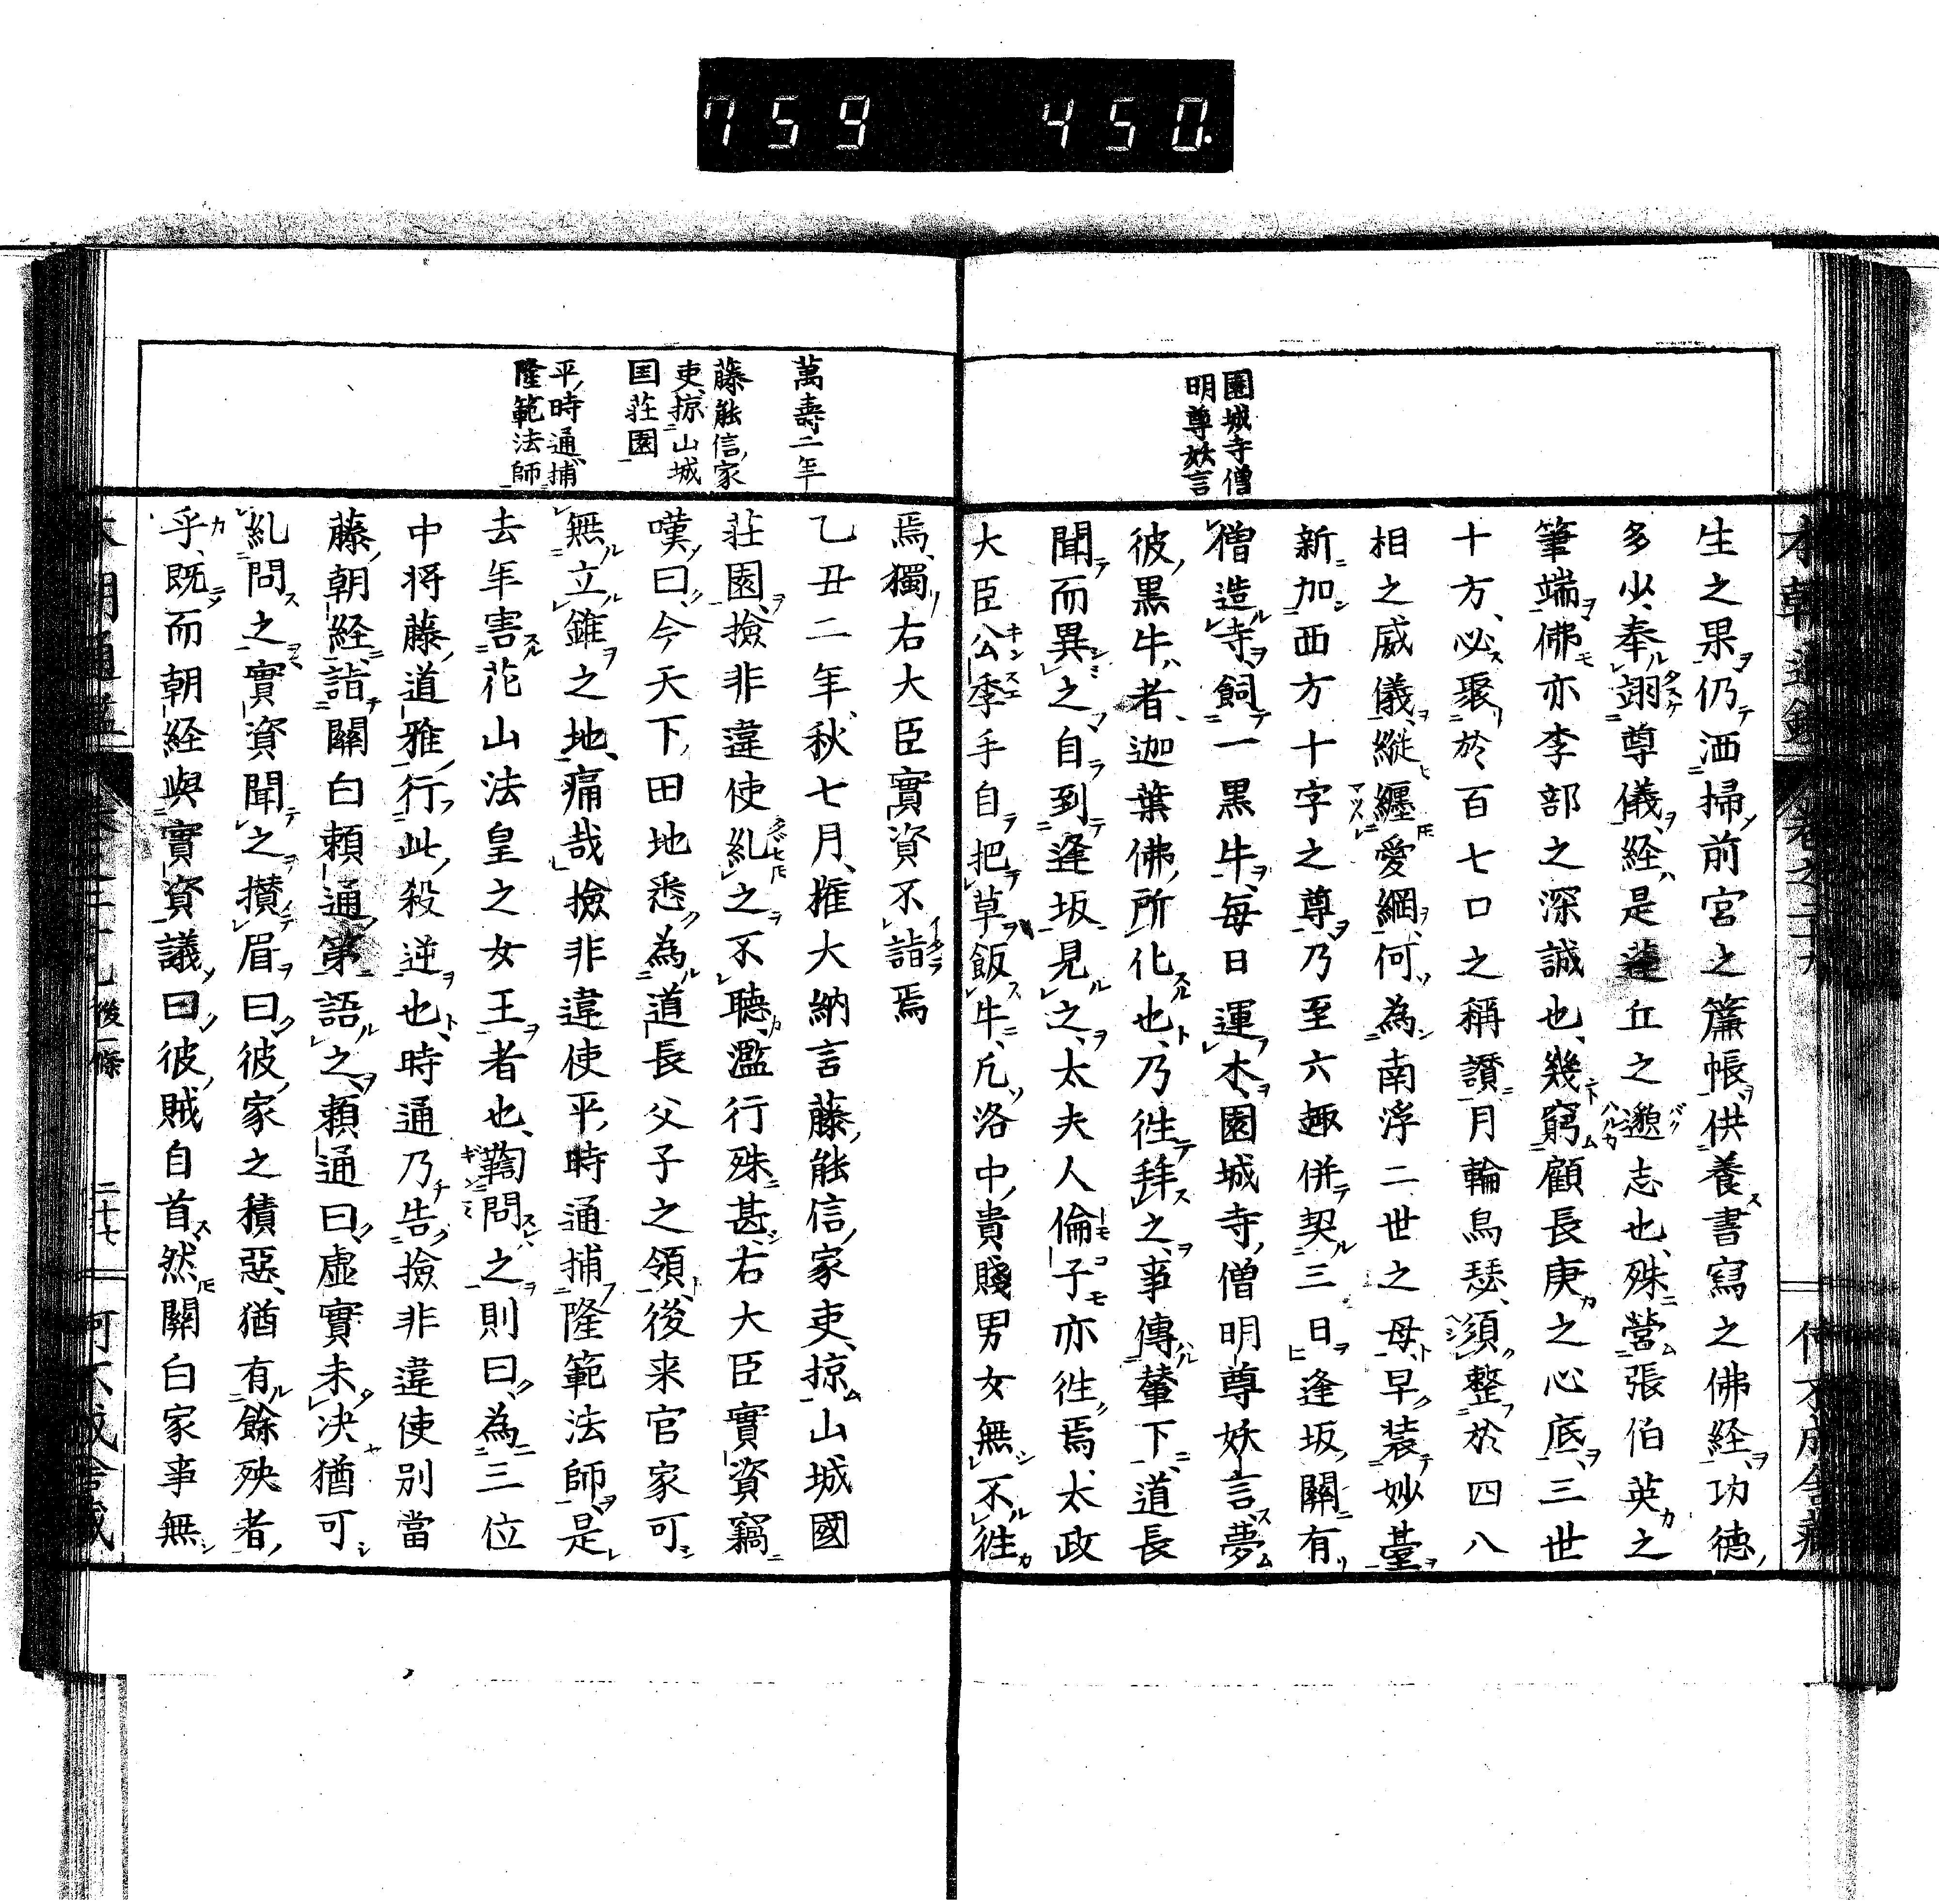 759 450.
園城寺僧
明尊妖言
生之果仍洒掃前宮之簾帳供養書寫之佛経功德
多少奉翊尊儀経是蓬丘之邈志也殊營張伯英之
筆端佛亦李部之深誠也幾窮顧長庚之心底三世
十方必聚於百七口之稱讃月輪烏瑟須整於四八
相之威儀縱纏愛網何為南浮二世之母早装妙臺
新加西方十字之尊乃至六趣併契三日逢坂關有
僧造寺飼一黒牛每日運木園城寺僧明尊妖言夢
彼黒牛者迦葉佛所化也乃徃拜之事傳輦下道長
聞而異之自到逢坂見之太夫人倫子亦徃焉太政
大臣公季手自把草飯牛凡洛中貴賤男女無不徃
萬壽二年
藤能信家
吏掠山城
国荘園
平時通捕
隆範法師
焉獨右大臣實資不詣焉
乙丑二年秋七月權大納言藤能信家吏掠山城國
荘園撿非違使糺之不聽濫行殊甚右大臣實資竊
嘆曰今天下田地悉為道長父子之領後来官家可
無立錐之地痛哉撿非違使平時通捕隆範法師是
去年害花山法皇之女王者也鞫問之則曰為三位
中将藤道雅行此殺逆也時通乃告撿非違使別當
藤朝経詣關白頼通第語之頼通曰虚實未决猶可
糺問之實資聞之攅眉曰彼家之積惡猶有餘殃者
乎既而朝経與實資議曰彼賊自首然關白家事無
後一條
二十七